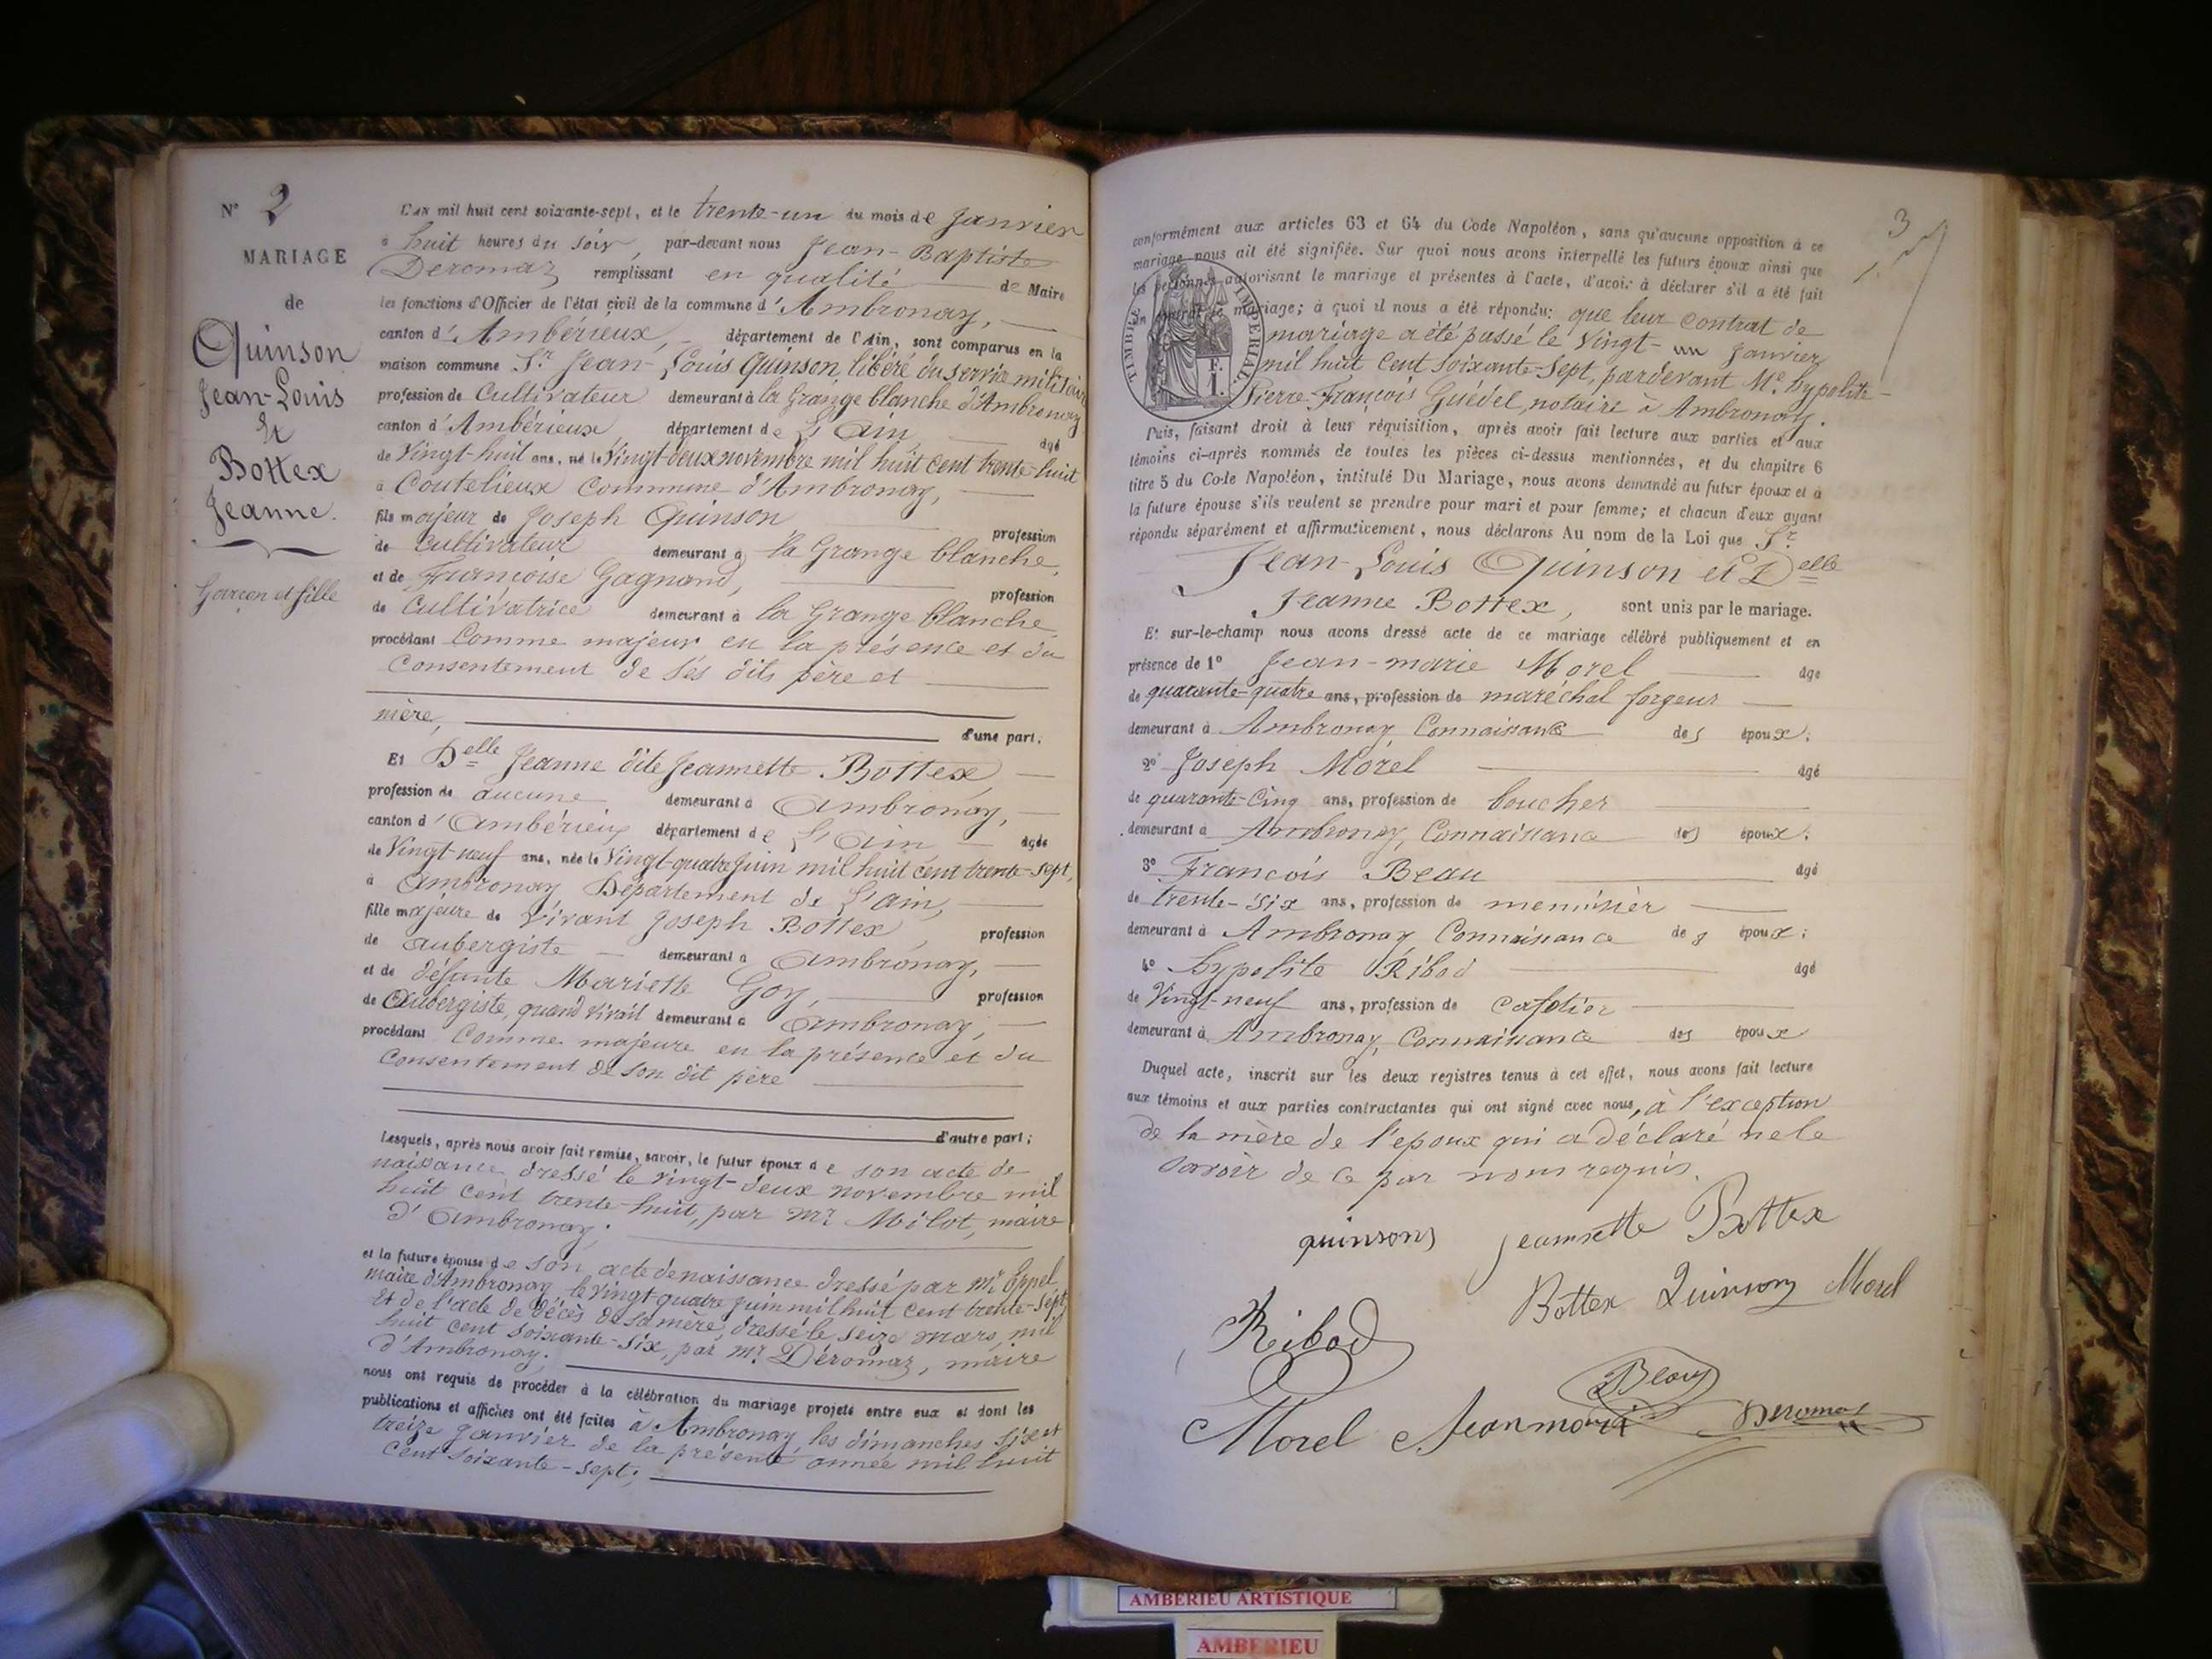 N° 2
MARIAGE
de
Quinson
Jean-Louis
&
Bottex
Jeanne.
Garçon et fille
L'AN mil huit cent soixante-sept, et le trente-un du mois de Janvier
à huit heures du soir, par-devant nous Jean-Baptiste
Deromaz remplissant en qualité de Maire
les fonctions d'Officier de l'état civil de la commune d'Ambronay,
canton d'Ambérieux, département de l'Ain, sont comparus en la
maison commune Sr. Jean-Louis Quinson, libéré du service militaire
profession de Cultivateur demeurant à la Grange blanche d'Ambronay
canton d'Ambérieux département de L'Ain, âgé
de Vingt-huit ans, né le Vingt-deux novembre mil huit cent trente-huit
à Coutelieux Commune d'Ambronay,
fils majeur de Joseph Quinson profession
de Cultivateur demeurant à la Grange blanche,
et de Françoise Gagnand, profession
de Cultivatrice demeurant à la Grange blanche
procédant Comme majeur en la présence et du
Consentement de ses dits père et
mère, d'une part;
Et Delle Jeanne dite Jeannette Bottex,
profession de aucune demeurant à Ambronay,
canton d'Ambérieux département de L'Ain âgée
de Vingt-neuf ans, née le Vingt-quatre Juin mil huit cent trente-sept,
à Ambronay, Département de L'ain,
fille majeure de Vivant Joseph Bottex, profession
de aubergiste demeurant à Ambronay,
et de défunte Mariette Goy, profession
de Aubergiste, quand vivait demeurant à Ambronay,
procédant Comme majeure en la présence et du
Consentement de son dit père
d'autre part;
Lesquels, après nous avoir fait remise, savoir, le futur époux de son acte de
naissance dressé le vingt-deux novembre mil
huit cent trente-huit, par Mr. Milot, maire
d'Ambronay;
et la future épouse de son acte de naissance dressé par Mr Eppel
maire d'Ambronay, le vingt-quatre juin mil huit cent trente-sept,
et de l'acte de décès de sa mère, dressé le seize mars, mil
huit cent soixante-six, par Mr. Déromaz, maire
d'Ambronay.
nous ont requis de procéder à la célébration du mariage projeté entre eux et dont les
publications et affiches ont été faites à Ambronay, les dimanches six et
treize janvier de la présente année mil huit
cent soixante-sept;
3
conformément aux articles 63 et 64 du Code Napoléon, sans qu'aucune opposition à ce
mariage nous ait été signifiée. Sur quoi nous avons interpellé les futurs époux ainsi que
les personnes autorisant le mariage et présentes à l'acte, d'avoir à déclarer s'il a été fait
un contrat de mariage; à quoi il nous a été répondu: que leur contrat de
mariage a été passé le Vingt-un Janvier
mil huit cent soixante-sept, pardevant Me. hypolite-
Pierre-François Guédel, notaire à Ambronay.
TIMBRE IMPERIAL
1 F.
Puis, faisant droit à leur réquisition, après avoir fait lecture aux parties et aux
témoins ci-après nommés de toutes les pièces ci-dessus mentionnées, et du chapitre 6
titre 5 du Code Napoléon, intitulé Du Mariage, nous avons demandé au futur époux et à
la future épouse s'ils veulent se prendre pour mari et pour femme; et chacun d'eux ayant
répondu séparément et affirmativement, nous déclarons Au nom de la Loi que Sr.
Jean-Louis Quinson et Delle
Jeanne Bottex, sont unis par le mariage.
Et sur-le-champ nous avons dressé acte de ce mariage célébré publiquement et en
présence de 1° Jean-marie Morel âge
de quarante-quatre ans, profession de maréchal forgeur
demeurant à Ambronay Connaissance des époux;
2° Joseph Morel âgé
de quarante-Cinq ans, profession de boucher
demeurant à Ambronay, Connaissance des époux;
3° François Beau âgé
de trente-six ans, profession de menuisier
demeurant à Ambronay, Connaissance des époux;
4° hypolite Ribod âgé
de Vingt-neuf ans, profession de cafetier
demeurant à Ambronay, Connaissance des époux
Duquel acte, inscrit sur les deux registres tenus à cet effet, nous avons fait lecture
aux témoins et aux parties contractantes qui ont signé avec nous, à l'exception
de la mère de l'epoux qui a déclaré ne le
savoir de ce par nous requis.
quinson jeannette Bottex
Bottex Quinson Morel
Ribod
Beau
Morel Jeanmarie Deromaz
AMBERIEU ARTISTIQUE
AMBERIEU